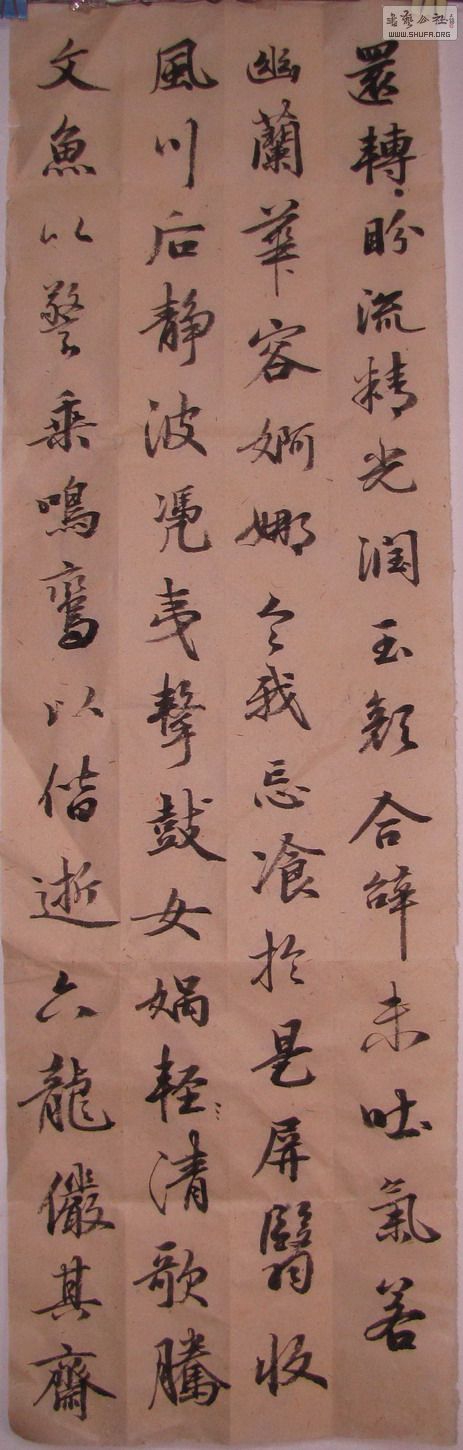 還轉盼流精光潤玉顏含辭未吐氣若
幽蘭華容婀娜令我忘飡於是屏翳收
風川后靜波馮夷擊鼓女媧輕清歌騰
文魚以警乘鳴鸞以偕逝六龍儼其齊
書藝公社
WWW.SHUFA.ORG